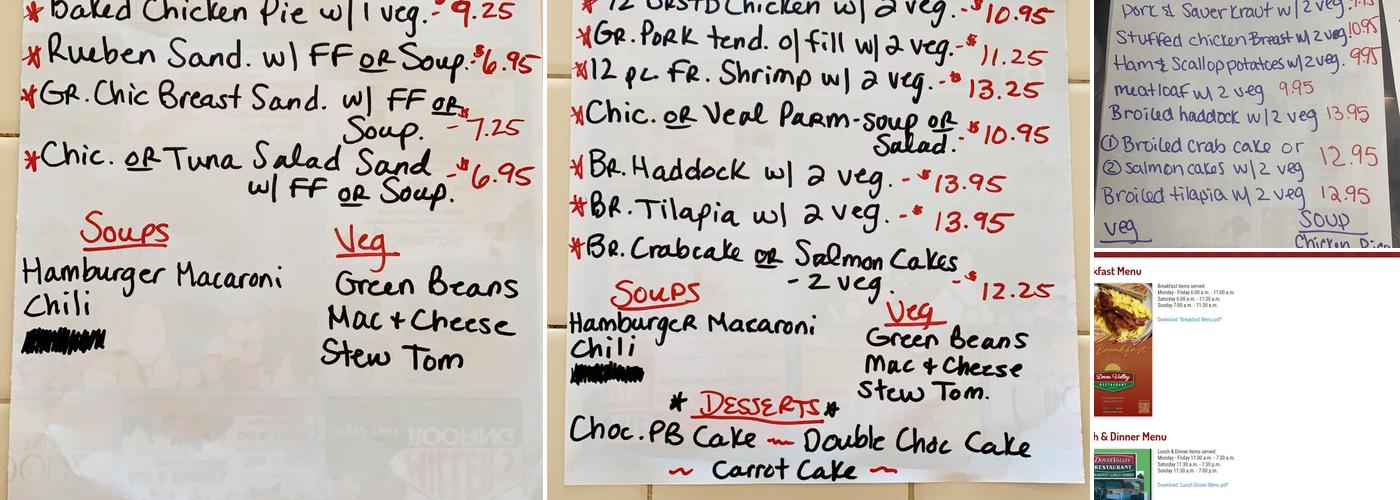 * Baked Chicken Pie w/ 1 veg. - 9.25
* Rueben Sand. w/ FF OR Soup. - $6.95
* GR. Chic Breast Sand. w/ FF OR
Soup. - $7.25
* Chic. OR Tuna Salad Sand
w/ FF OR Soup. - $6.95
Soups
Hamburger Macaroni
Chili
Veg
Green Beans
Mac + Cheese
Stew Tom
* 1/2 BRSTD Chicken w/ 2 veg. - $10.95
* GR. Pork tend. o/ fill w/ 2 veg. - $11.25
* 12 pc. FR. Shrimp w/ 2 veg. - $13.25
* Chic. OR Veal Parm - soup OR
Salad. - $10.95
* BR. Haddock w/ 2 veg. - $13.95
* BR. Tilapia w/ 2 veg. - $13.95
* BR. Crabcake OR Salmon Cakes
- 2 veg. - $12.25
Soups
Hamburger Macaroni
Chili
Veg
Green Beans
Mac & Cheese
Stew Tom.
* DESSERTS *
Choc. PB Cake ~ Double Choc Cake
~ Carrot Cake ~
Pork & Sauerkraut w/ 2 veg.
Stuffed chicken Breast w/ 2 veg. 10.95
Ham & Scallop potatoes w/ 2 veg. 9.95
meatloaf w/ 2 veg 9.95
Broiled haddock w/ 2 veg 13.95
① Broiled crab cake or
② salmon cakes w/ 2 veg 12.95
Broiled tilapia w/ 2 veg 12.95
veg
SOUP
Chicken Rice
kfast Menu
Breakfast items served:
Monday - Friday 6:00 a.m. - 11:00 a.m.
Saturday 6:00 a.m. - 11:30 a.m.
Sunday 7:00 a.m. - 11:30 a.m.
Download "Breakfast Menu.pdf"
Breakfast
Dover Valley
RESTAURANT
h & Dinner Menu
Lunch & Dinner items served:
Monday - Friday 11:00 a.m. - 7:30 p.m.
Saturday 11:30 a.m. - 7:30 p.m.
Sunday 11:30 a.m. - 7:00 p.m.
Download "Lunch Dinner Menu.pdf"
DOVER VALLEY
RESTAURANT